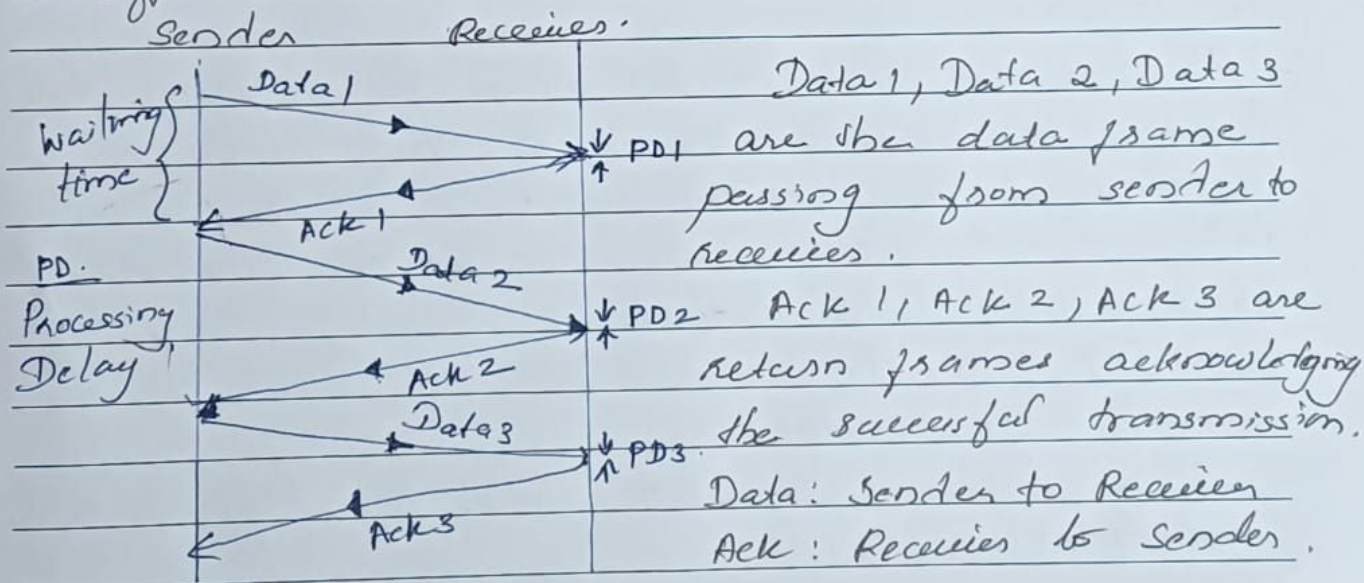 Sender Receiver.
Data 1
Waiting
time
PD1
Ack 1
PD.
Processing
Delay
Data 2
PD2
Ack 2
Data 3
PD3.
Ack 3
Data 1, Data 2, Data 3
are the data frame
passing from sender to
receiver.
Ack 1, Ack 2, Ack 3 are
return frames acknowledging
the successful transmission.
Data: Sender to Receiver
Ack: Receiver to Sender.